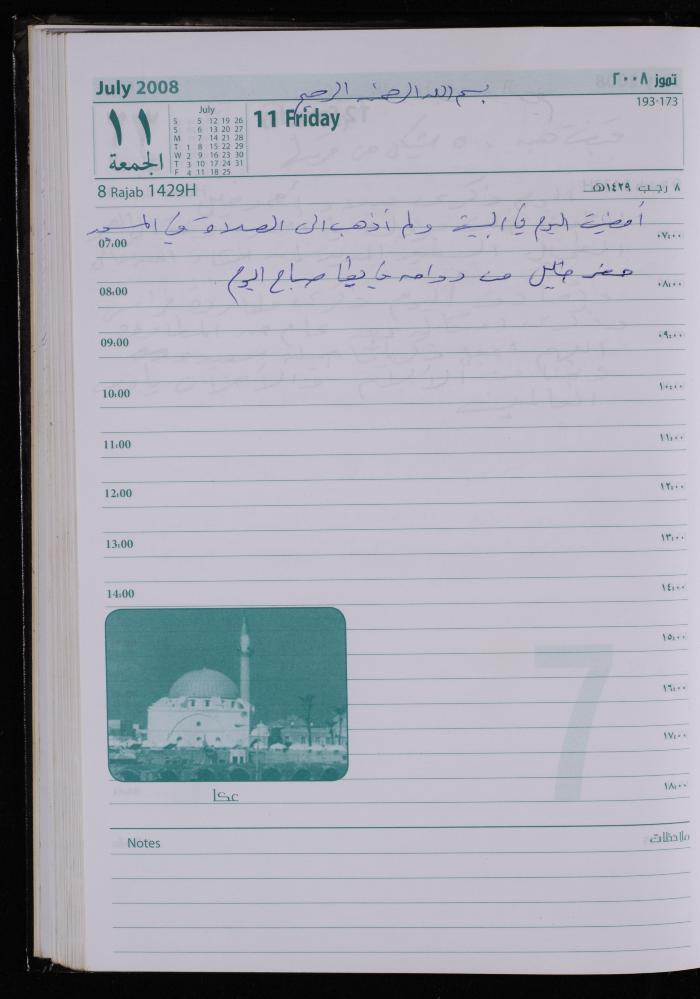 July 2008 بسم الله الرحمن الرحيم تموز ٢٠٠٨
193-173
١١ الجمعة
July
S 5 12 19 26
S 6 13 20 27
M 7 14 21 28
T 1 8 15 22 29
W 2 9 16 23 30
T 3 10 17 24 31
F 4 11 18 25
11 Friday
8 Rajab 1429H ٨ رجب ١٤٢٩هـ
أمضيت اليوم في البيت ولم أذهب الى الصلاة في المسجد
07:00 ٠٧:٠٠
حضر خليل من دوامه في يطا صباح اليوم
08:00 ٠٨:٠٠
09:00 ٠٩:٠٠
10:00 ١٠:٠٠
11:00 ١١:٠٠
12:00 ١٢:٠٠
13:00 ١٣:٠٠
14:00 ١٤:٠٠
١٥:٠٠
7
١٦:٠٠
١٧:٠٠
١٨:٠٠
عكا
Notes ملاحظات